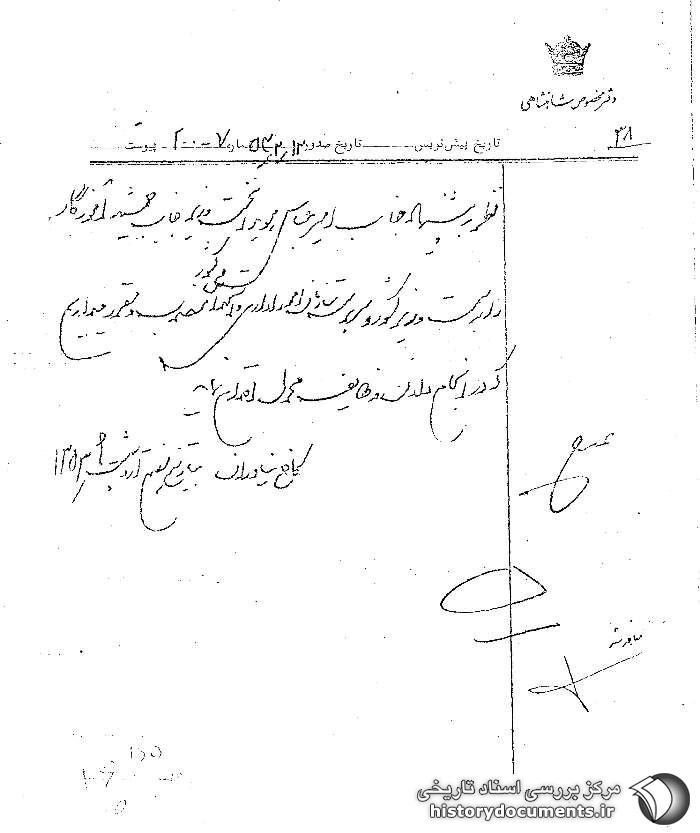 دفتر مخصوص شاهنشاهی
۳۸ تاریخ پیش‌نویس تاریخ صدور ۵۳/۲/۱۲ شماره ۷-۲۰۰ پیوست
نظر به پیشنهاد جناب امیرعباس هویدا نخست وزیر جناب جمشید آموزگار
را بسمت وزیر کشور و سازمان امور اداری و استخدامی کشور منصوب و مقرر میداریم
که در انجام دادن وظایف محوله اقدام نماید
کاخ نیاوران بتاریخ اردیبهشت ۱۳۵۳
مرکز بررسی اسناد تاریخی
historydocuments.ir